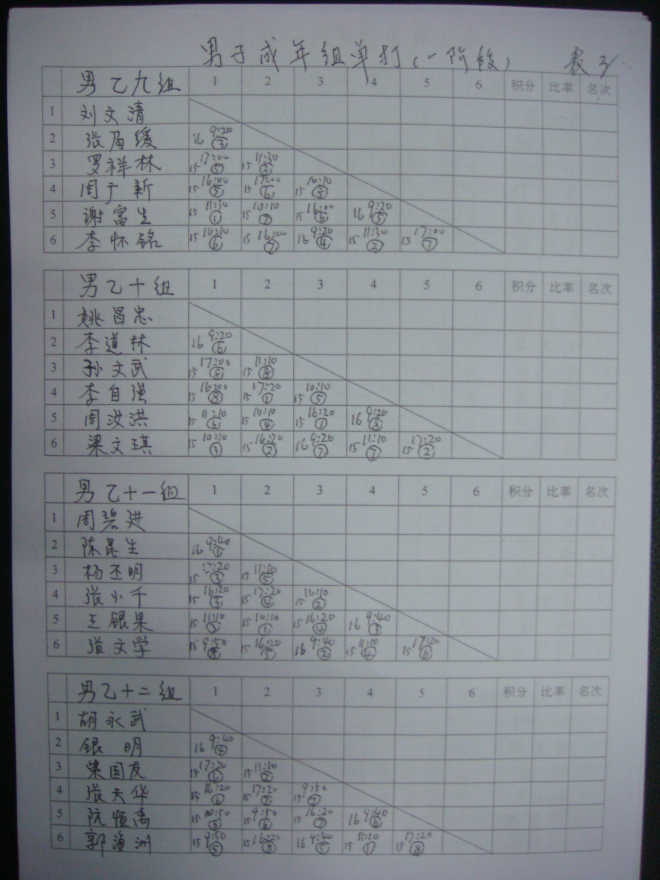 男子成年组单打(一阶段) 表3
男乙九组 1 2 3 4 5 6 积分 比率 名次
1 刘文清
2 张眉缓 16 9:20 ③
3 罗祥林 15 17:00 ⑤ 15 11:30
4 周于新 15 16:40 15 17:00 ⑥ 15 10:10
5 谢富生 15 11:30 ① 15 10:10 15 16:00 16 9:20 ⑤
6 李怀铭 15 10:10 ⑥ 15 16:00 ⑦ 16 9:20 ④ 15 11:30 ② 15 17:00 ⑦
男乙十组 1 2 3 4 5 6 积分 比率 名次
1 姚昌忠
2 李道林 16 9:20 ⑥
3 孙文武 15 17:00 ⑧ 15 11:10 ⑧
4 李自强 15 16:00 ⑧ 15 17:20 ① 15 10:10 ⑤
5 周汝洪 15 11:10 ⑥ 15 10:10 ④ 15 16:20 ① 16 9:20 ⑧
6 梁文琪 15 10:10 ③ 15 16:20 ② 16 9:20 ⑦ 15 11:10 ⑦ 15 17:20 ②
男乙十一组 1 2 3 4 5 6 积分 比率 名次
1 周碧进
2 陈昆生 16 9:40 ①
3 杨丕明 15 17:20 ③ 15 11:10 ⑤
4 张小千 15 16:20 ③ 15 17:20 ④ 15 10:10 ②
5 王银果 15 11:10 ③ 15 10:10 ① 15 16:20 ④ 16 9:40 ③
6 张文学 15 9:50 15 16:20 ⑤ 16 9:40 ② 15 11:10 ④ 15 17:20
男乙十二组 1 2 3 4 5 6 积分 比率 名次
1 胡永武
2 银明 16 9:40 ④
3 柴国友 15 17:20 ⑥ 15 11:10 ②
4 张大华 15 16:20 ⑥ 15 17:20 ⑦ 15 9:50 ⑦
5 阮恒禹 15 9:50 ⑥ 15 16:20 ⑦ 16 9:40
6 郭海洲 15 9:50 ⑤ 15 16:20 ⑧ 16 9:40 ⑤ 15 ① 15 17:20 ⑧